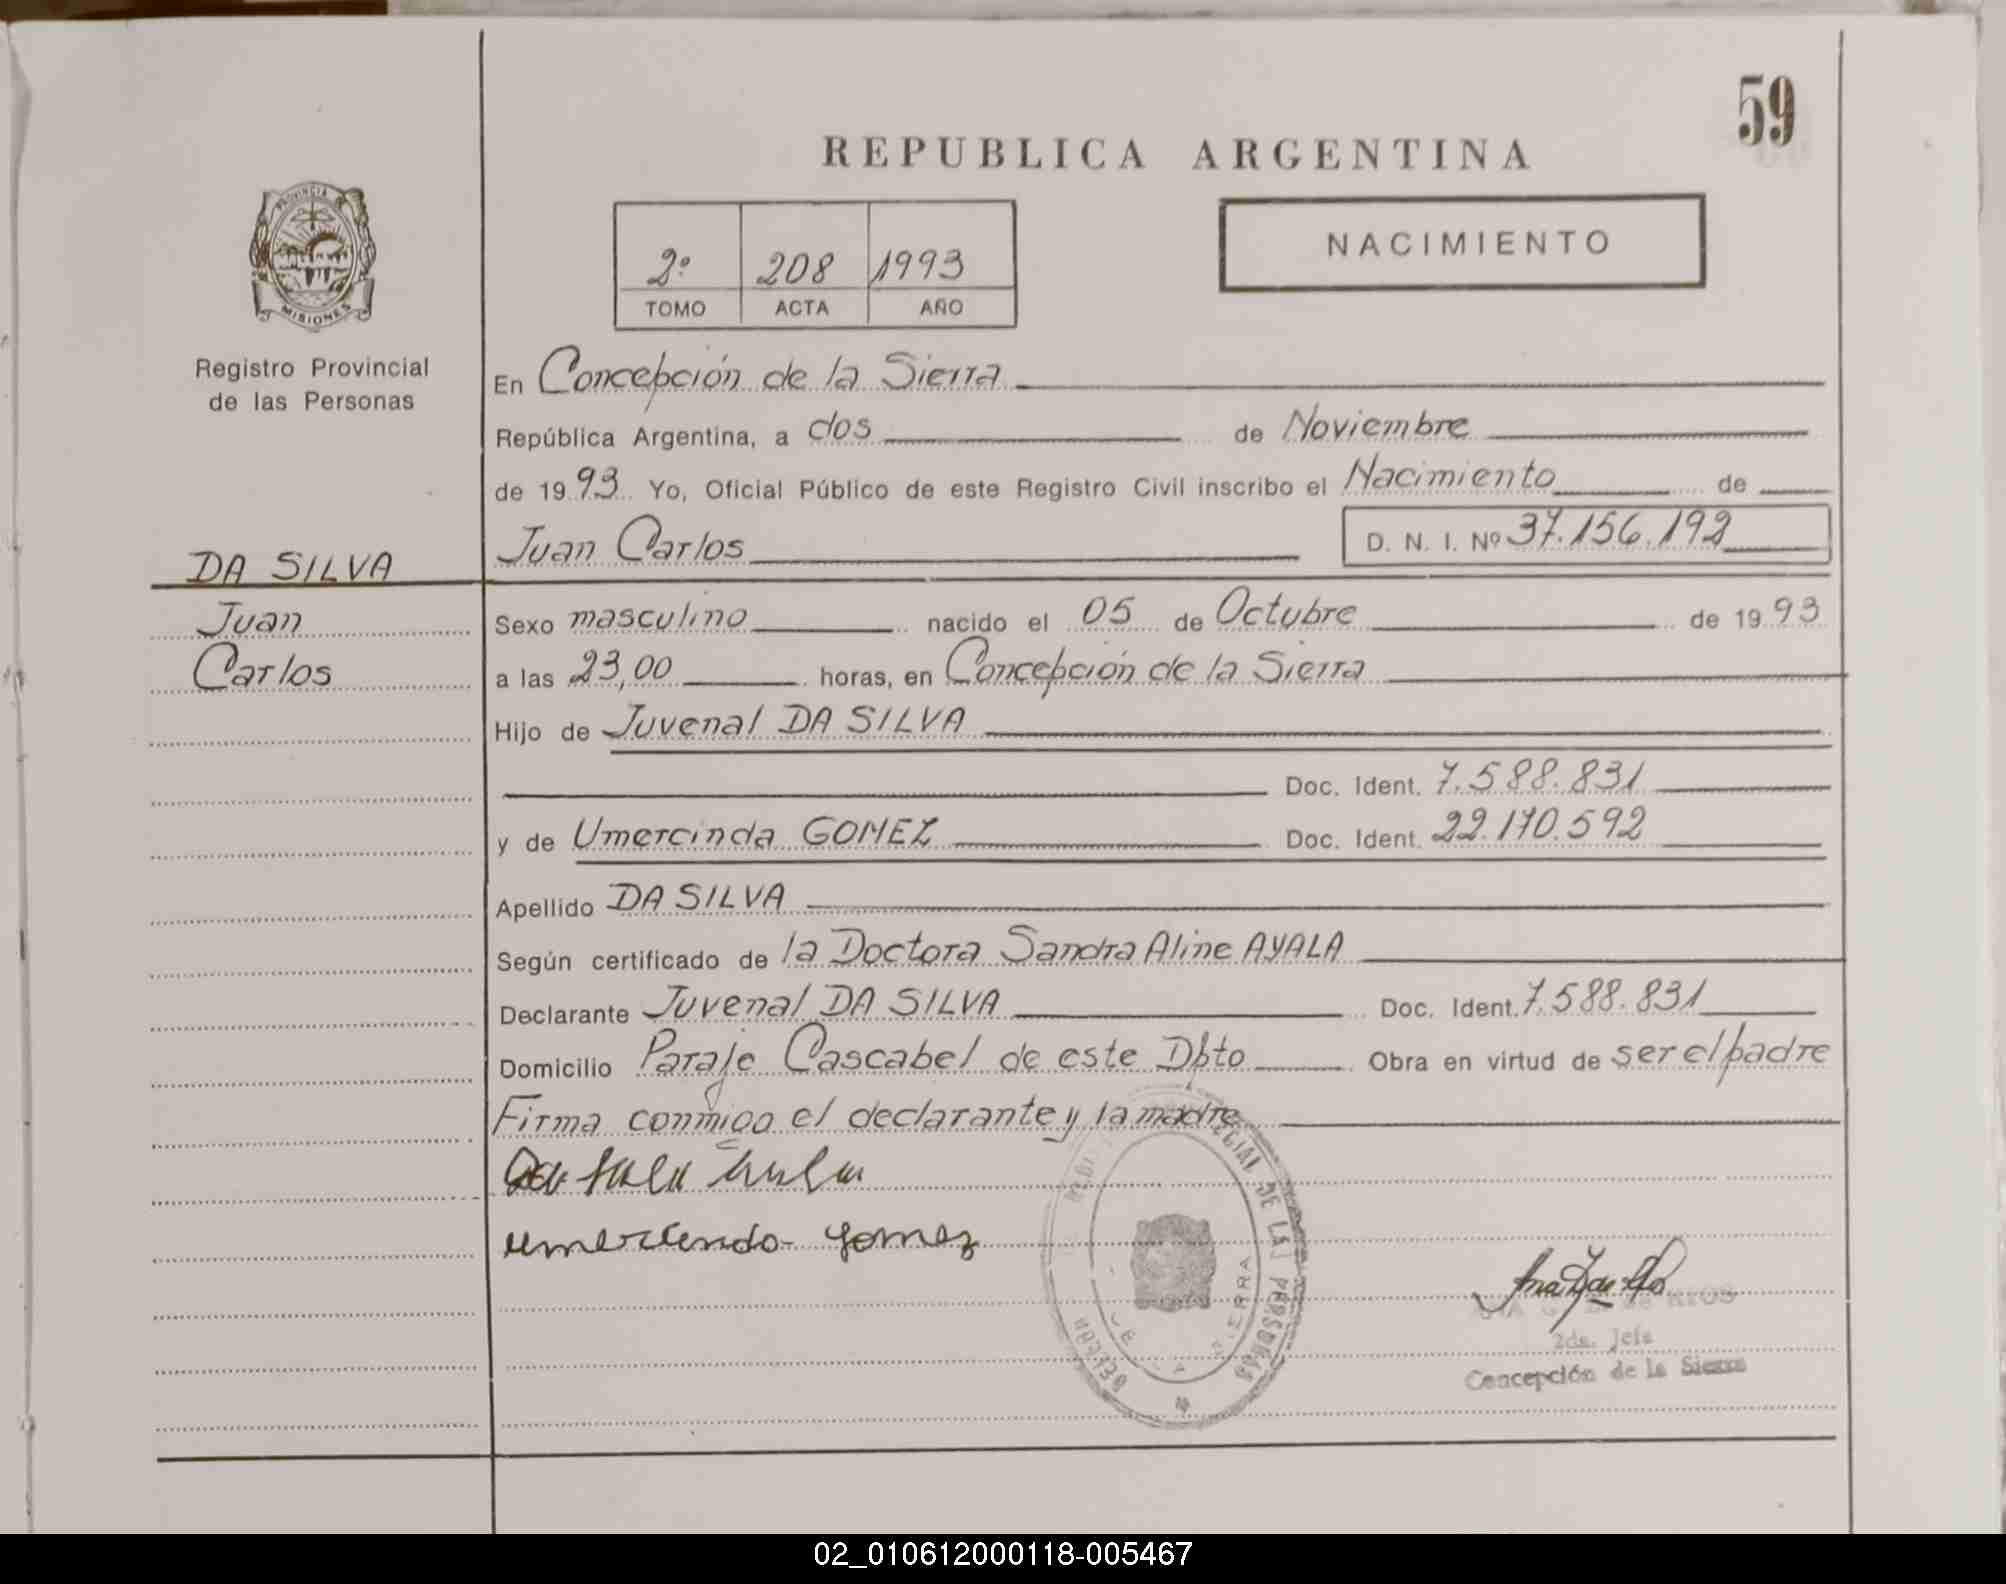 59
REPUBLICA ARGENTINA
PROVINCIA
MISIONES
Registro Provincial
de las Personas
2º 208 1993
TOMO ACTA AÑO
NACIMIENTO
En Concepción de la Sierra
República Argentina, a dos de Noviembre
de 1993 Yo, Oficial Público de este Registro Civil inscribo el Nacimiento de
Juan Carlos D. N. I. Nº 37.156.192
DA SILVA
Juan
Carlos
Sexo masculino nacido el 05 de Octubre de 1993
a las 23,00 horas, en Concepción de la Sierra
Hijo de Juvenal DA SILVA
Doc. Ident. 7.588.831
y de Umercinda GOMEZ Doc. Ident. 22.170.592
Apellido DA SILVA
Según certificado de la Doctora Sandra Aline AYALA
Declarante Juvenal DA SILVA Doc. Ident. 7.588.831
Domicilio Paraje Cascabel de este Dpto Obra en virtud de ser el padre
Firma conmigo el declarante y la madre
umercendo gomez
DE LAS PERSONAS
2da. Jefa
Concepción de la Sierra
02_010612000118-005467